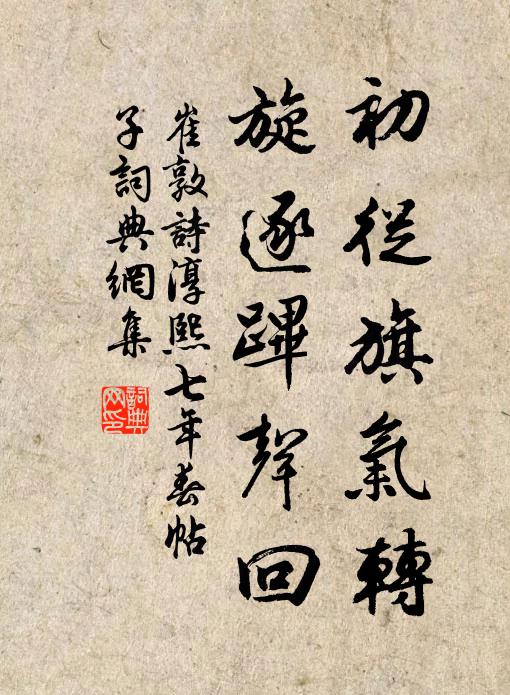 初從旗氣轉
旋逐蹕聲回
崔敦詩淳熙七年春帖
子詞典網集
詞典
网印